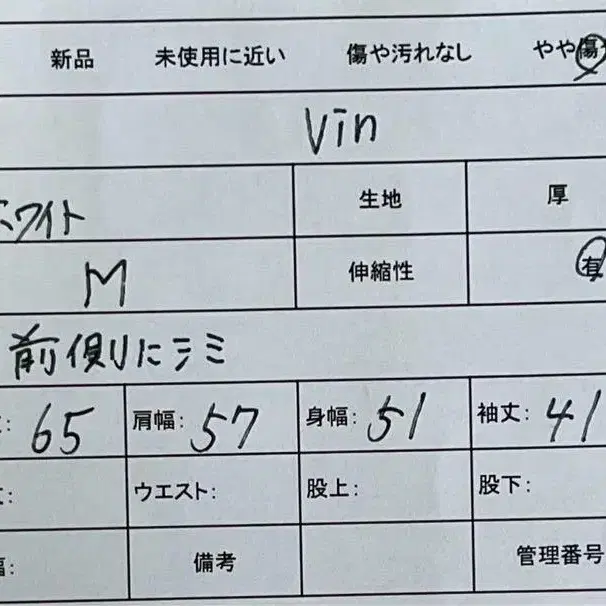 新品 未使用に近い 傷や汚れなし やや傷
Vin
ホワイト 生地 厚
M 伸縮性 有
前側にシミ
: 65 肩幅: 57 身幅: 51 袖丈: 41
: ウエスト: 股上: 股下:
幅: 備考 管理番号